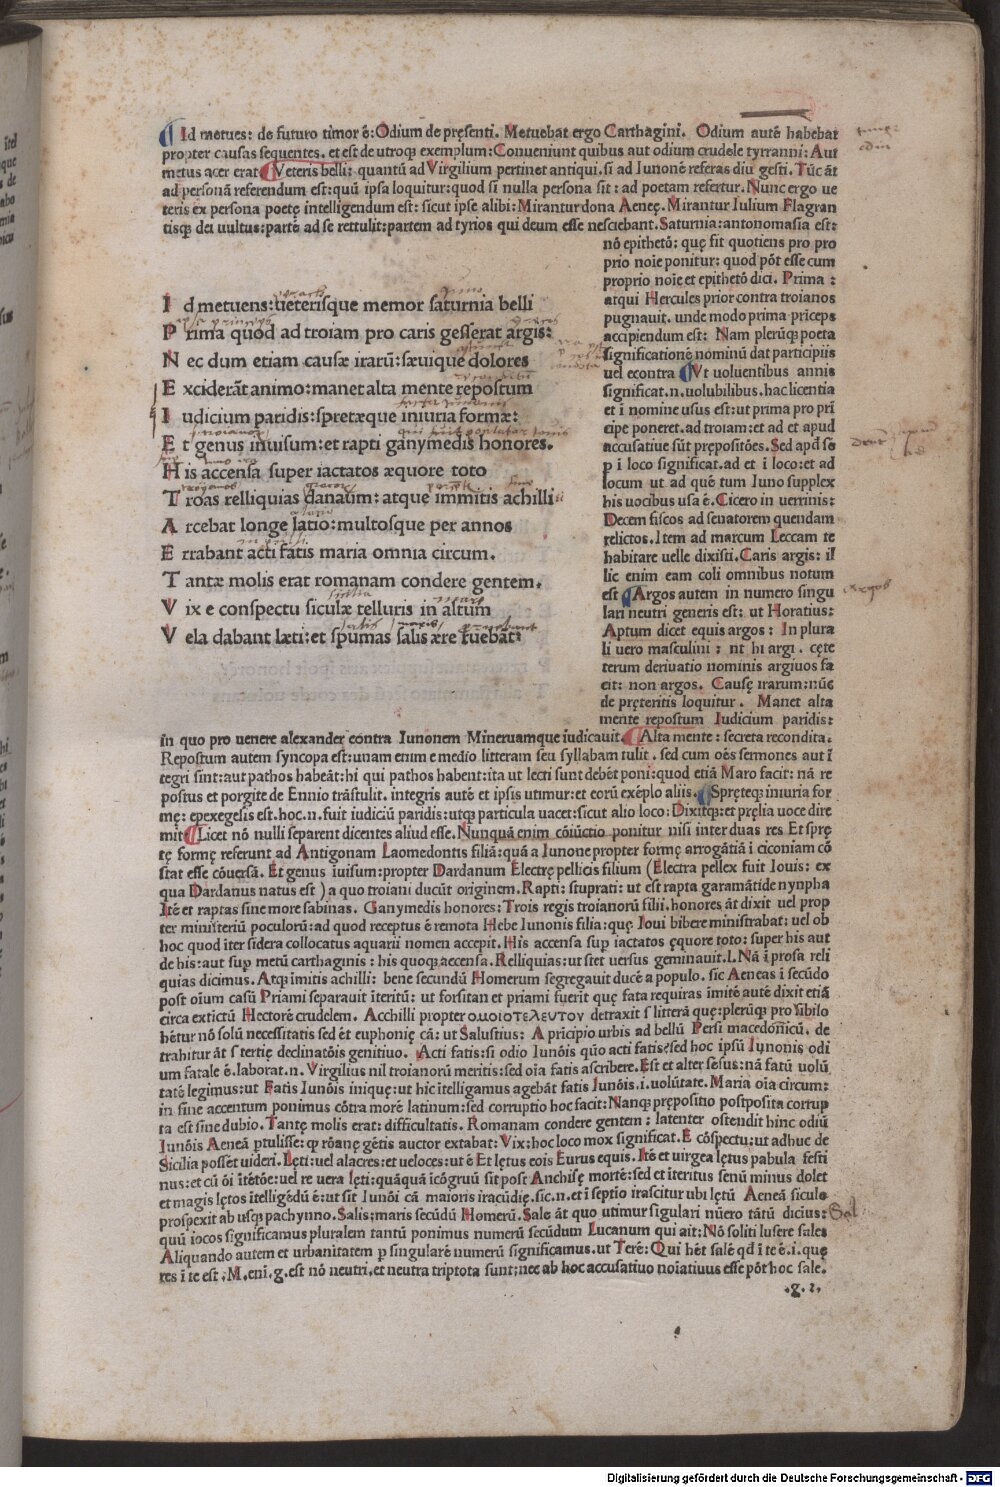 Id metues: de futuro timor ē: Odium de pręsenti. Metuebat ergo Carthagini. Odium autē habebat
propter causas sequentes. et est de utroq; exemplum: Conueniunt quibus aut odium crudele tyrranni: Aut
metus acer erat Veteris belli: quantū ad Virgilium pertinet antiqui. si ad Iunonē referas diu gesti. Tūc āt
ad personā referendum est: quū ipsa loquitur: quod si nulla persona sit: ad poetam refertur. Nunc ergo ue
teris ex persona poetę intelligendum est: sicut ipse alibi: Mirantur dona Aeneę. Mirantur Iulium Flagran
tisq; dei uultus: partē ad se rettulit: partem ad tyrios qui deum esse nesciebant. Saturnia: antonomasia est:
nō epithetō: quę fit quotiens pro pro
prio noīe ponitur: quod pōt esse cum
proprio noīe et epithetō dici. Prima:
atqui Hercules prior contra troianos
pugnauit. unde modo prima priceps
accipiendum est: Nam plerūq; poeta
significationē nominū dat participiis
uel econtra Vt uoluentibus annis
significat. n. uolubilibus. hac licentia
et ī nomine usus est: ut prima pro prī
cipe poneret. ad troiam: et ad et apud
accusatiue sūt prępositōes. Sed apd se
p ī loco significat. ad et ī loco: et ad
locum ut ad quē tum Iuno supplex
his uocibus usa ē. Cicero in uerrinis:
Decem fiscos ad senatorem quendam
relictos. Item ad marcum Leccam te
habitare uelle dixisti. Caris argis: il
lic enim eam coli omnibus notum
est Argos autem in numero singu
lari neutri generis est: ut Horatius:
Aptum dicet equis argos: In plura
li uero masculini: nt hi argi. cęte
terum deriuatio nominis argiuos fa
cit: non argos. Causę irarum: nūc
de pręteritis loquitur. Manet alta
mente repostum Iudicium paridis:
I d metuens: ueterisque memor saturnia belli
P rima quod ad troiam pro caris gesserat argis:
N ec dum etiam causæ irarū: sæuique dolores
E xciderāt animo: manet alta mente repostum
I udicium paridis: spretæque iniuria formæ:
E t genus inuisum: et rapti ganymedis honores.
H is accensa super iactatos æquore toto
T roas relliquias danaum: atque immitis achilli
A rcebat longe latio: multosque per annos
E rrabant acti fatis maria omnia circum.
T antæ molis erat romanam condere gentem.
V ix e conspectu siculæ telluris in altum
V ela dabant læti: et spumas salis ære ruebāt:
in quo pro uenere alexander contra Iunonem Mineruamque iudicauit. Alta mente: secreta recondita.
Repostum autem syncopa est: unam enim e medio litteram seu syllabam tulit. sed cum oēs sermones aut ī
tegri sint: aut pathos habeāt: hi qui pathos habent: ita ut lecti sunt debēt poni: quod etiā Maro facit: nā re
postus et porgite de Ennio trāstulit. integris autē et ipsis utimur: et eorū exēplo aliis. Spręteq; iniuria for
mę: epexegesis est. hoc. n. fuit iudiciū paridis: utq; particula uacet: sicut alio loco: Dixitq; et pręlia uoce dire
mit Licet nō nulli separent dicentes aliud esse. Nunquā enim cōiūctio ponitur nisi inter duas res Et sprę
tę formę referunt ad Antigonam Laomedontis filiā: quā a Iunone propter formę arrogātiā ī ciconiam cō
stat esse cōuersā. Et genus īuisum: propter Dardanum Electrę pellicis filium (Electra pellex fuit Iouis: ex
qua Dardanus natus est) a quo troiani ducūt originem. Rapti: stuprati: ut est rapta garamātide nynpha
Itē et raptas sine more sabinas. Ganymedis honores: Trois regis troianorū filii. honores āt dixit uel prop
ter ministeriū poculorū: ad quod receptus ē remota Hebe Iunonis filia: quę Ioui bibere ministrabat: uel ob
hoc quod iter sidera collocatus aquarii nomen accepit. His accensa sup iactatos ęquore toto: super his aut
de his: aut sup metū carthaginis: his quoq; accensa. Relliquias: ut stet uersus geminauit. L Nā ī prosa reli
quias dicimus. Atq; imitis achilli: bene secundū Homerum segregauit ducē a populo. sic Aeneas ī secūdo
post oīum casū Priami separauit īteritū: ut forsitan et priami fuerit quę fata requiras imitē autē dixit etiā
circa extictū Hectorē crudelem. Acchilli propter ομοιοτελευτον detraxit s litterā quę: plerūq; pro sibilo
hētur nō solū necessitatis sed ēt euphonię cā: ut Salustius: A pricipio urbis ad bellū Persi macedonicū. de
trahitur āt s tertię declinatōis genitiuo. Acti fatis: si odio Iunōis quō acti fatis: sed hoc ipsū Iunonis odi
um fatale ē. laborat. n. Virgilius nil troianorū meritis: sed oīa fatis ascribere. Est et alter sēsus: nā fatū uolū
tatē legimus: ut Fatis Iunōis iniquę: ut hic ītelligamus agebāt fatis Iunōis. i. uolūtate. Maria oīa circum:
in fine accentum ponimus cōtra morē latinum: sed corruptio hoc facit: Nanq; prępositio postposita corrup
ta est sine dubio. Tantę molis erat: difficultatis. Romanam condere gentem: latenter ostendit hinc odiū
Iunōis Aeneā ptulisse: qp rōanę gētis auctor extabat: Vix: hoc loco mox significat. E cōspectu: ut adhuc de
Sicilia possēt uideri. Lęti: uel alacres: et ueloces: ut ē Et lętus eois Eurus equis. Itē et uirgea lętus pabula festi
nus: et cū ōi itētōe: uel re uera lęti: quāquā icōgruū sit post Anchisę mortē: sed et iteritus senū minus dolet
et magis lętos itelligēdū ē: ut sit Iunōi cā maioris iracūdię. sic. n. et ī septio irascitur ubi lętū Aeneā siculo
prospexit ab usq; pachynno. Salis: maris secūdū Homerū. Sale āt quo utimur sigulari nūero tātū dicius:
quū iocos significamus pluralem tantū ponimus numerū secūdum Lucanum qui ait: Nō soliti lusere sales
Aliquando autem et urbanitatem p singularē numerū significamus. ut Terē: Qui hēt salē qd ī te ē. i. quę
res ī te est: M. eni. g. est nō neutri. et neutra triptota sunt: nec ab hoc accusatiuo noīatiuus esse pōt hoc sale.
Sal
.g.2.
Digitalisierung gefördert durch die Deutsche Forschungsgemeinschaft - DFG